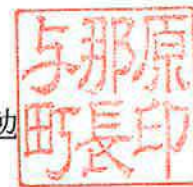 与那原
町長印